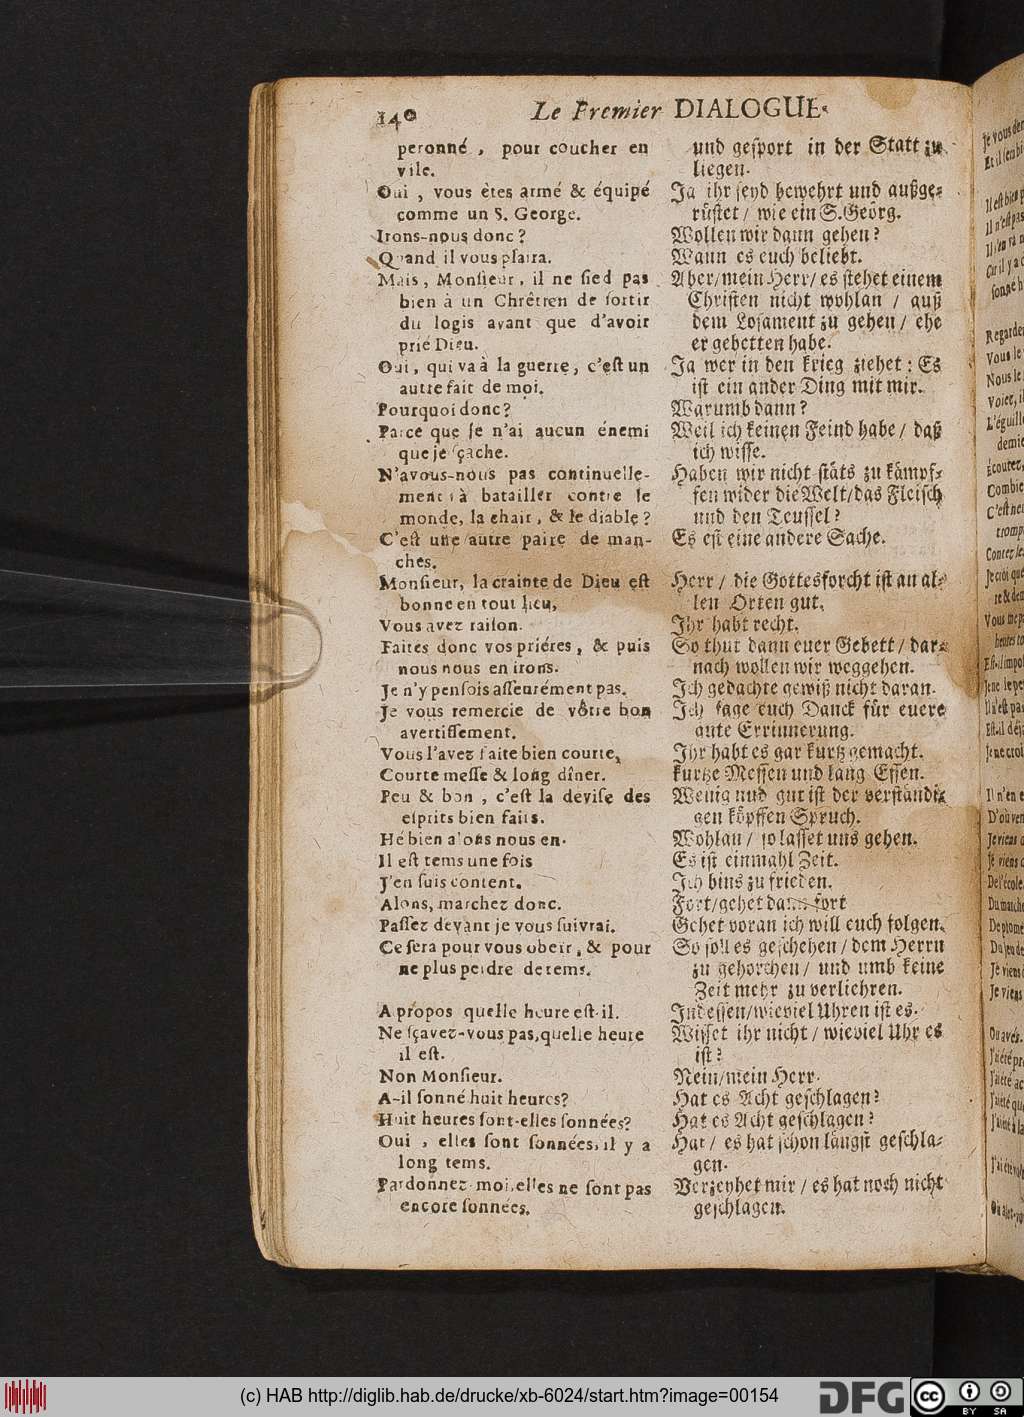 140
Le Premier DIALOGUE.
peronné, pour coucher en
vile.
Oui, vous êtes armé & équipé
comme un S. George.
Irons-nous donc?
Quand il vous plaira.
Mais, Monſieur, il ne ſied pas
bien à un Chrêtren de ſortir
du logis avant que d'avoir
prié Dieu.
Oui, qui va à la guerre, c'eſt un
autre fait de moi.
Pourquoi donc?
Parce que je n'ai aucun énemi
que je ſçache.
N'avous-nous pas continuelle-
ment à batailler contre le
monde, la chair, & le diable?
C'eſt une autre paire de man-
ches.
Monſieur, la crainte de Dieu eſt
bonne en tout lieu,
Vous avez raiſon.
Faites donc vos priéres, & puis
nous nous en irons.
Je n'y penſois aſſeurément pas.
Je vous remercie de vôtre bon
avertiſſement.
Vous l'avez faite bien courte,
Courte meſſe & long dîner.
Peu & bon, c'eſt la deviſe des
eſprits bien faits.
Hé bien alons nous en.
Il eſt tems une fois
J'en ſuis content.
Alons, marchez donc.
Paſſez devant je vous ſuivrai.
Ce ſera pour vous obeïr, & pour
ne plus perdre de tems.
A propos quelle heure eſt-il.
Ne ſçavez-vous pas, quelle heure
il eſt.
Non Monſieur.
A-il ſonné huit heures?
Huit heures ſont-elles ſonnées?
Oui, elles ſont ſonnées, il y a
long tems.
Pardonnez moi, elles ne ſont pas
encore ſonnées.
und geſport in der Statt zu
liegen.
Ja ihr ſeyd bewehrt und außge-
rüſtet / wie ein S. Georg.
Wollen wir dann gehen?
Wann es euch beliebt.
Aber / mein Herr / es ſtehet einem
Chriſten nicht wohl an / auß
dem Loſament zu gehen / ehe
er gebetten habe.
Ja wer in den krieg ziehet: Es
iſt ein ander Ding mit mir.
Warumb dann?
Weil ich keinen Feind habe / daß
ich wiſſe.
Haben wir nicht ſtäts zu kämpf-
fen wider die Welt / das Fleiſch
und den Teuffel?
Es eſt eine andere Sache.
Herr / die Gottesforcht iſt an al-
len Orten gut.
Ihr habt recht.
So thut dann euer Gebett / dar-
nach wollen wir weggehen.
Ich gedachte gewiß nicht daran.
Ich ſage euch Danck für euere
gute Errinnerung.
Ihr habt es gar kurtz gemacht.
kurtze Meſſen und lang Eſſen.
Wenig und gut iſt der verſtändi-
gen köpffen Spruch.
Wohlan / ſo laſſet uns gehen.
Es iſt einmahl Zeit.
Ich bins zu frieden.
Fort / gehet dann fort
Gehet voran ich will euch folgen.
So ſoll es geſchehen / dem Herrn
zu gehorchen / und umb keine
Zeit mehr zu verliehren.
Indeſſen / wieviel Uhren iſt es.
Wiſſet ihr nicht / wieviel Uhr es
iſt?
Nein / mein Herr.
Hat es Acht geſchlagen?
Hat es Acht geſchlagen?
Hat / es hat ſchon längſt geſchla-
gen.
Verzeyhet mir / es hat noch nicht
geſchlagen.
(c) HAB http://diglib.hab.de/drucke/xb-6024/start.htm?image=00154
DFG
cc BY SA